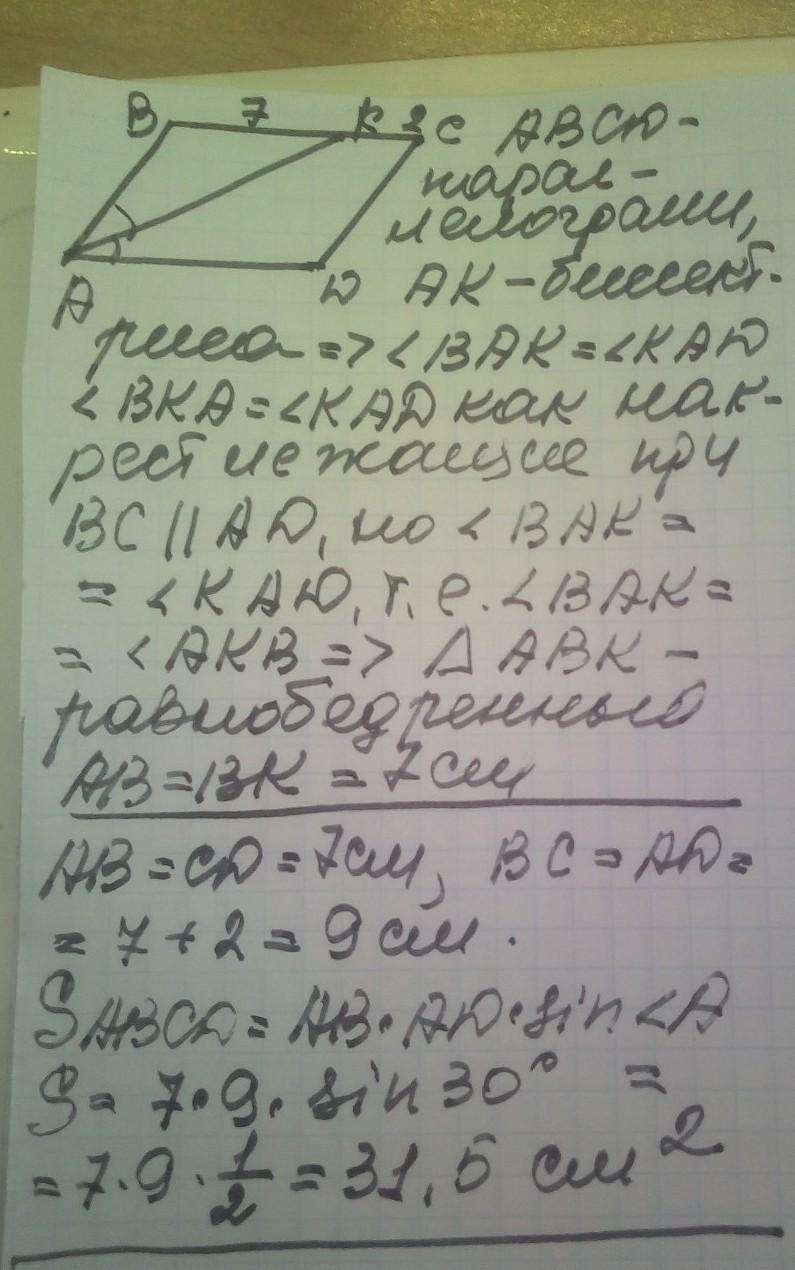 B 7 K 2 C ABCD-
парал-
лелограмм,
A D AK - биссект-
риса => <BAK = <KAD
<BKA = <KAD как нак-
рест лежащие при
BC || AD, но <BAK =
= <KAD, т.е. <BAK =
= <AKB => Δ ABK -
равнобедренный
AB = BK = 7 см
AB = CD = 7 см, BC = AD =
= 7 + 2 = 9 см.
S ABCD = AB · AD · sin <A
S = 7 · 9 · sin 30° =
= 7 · 9 · 1/2 = 31,5 см²